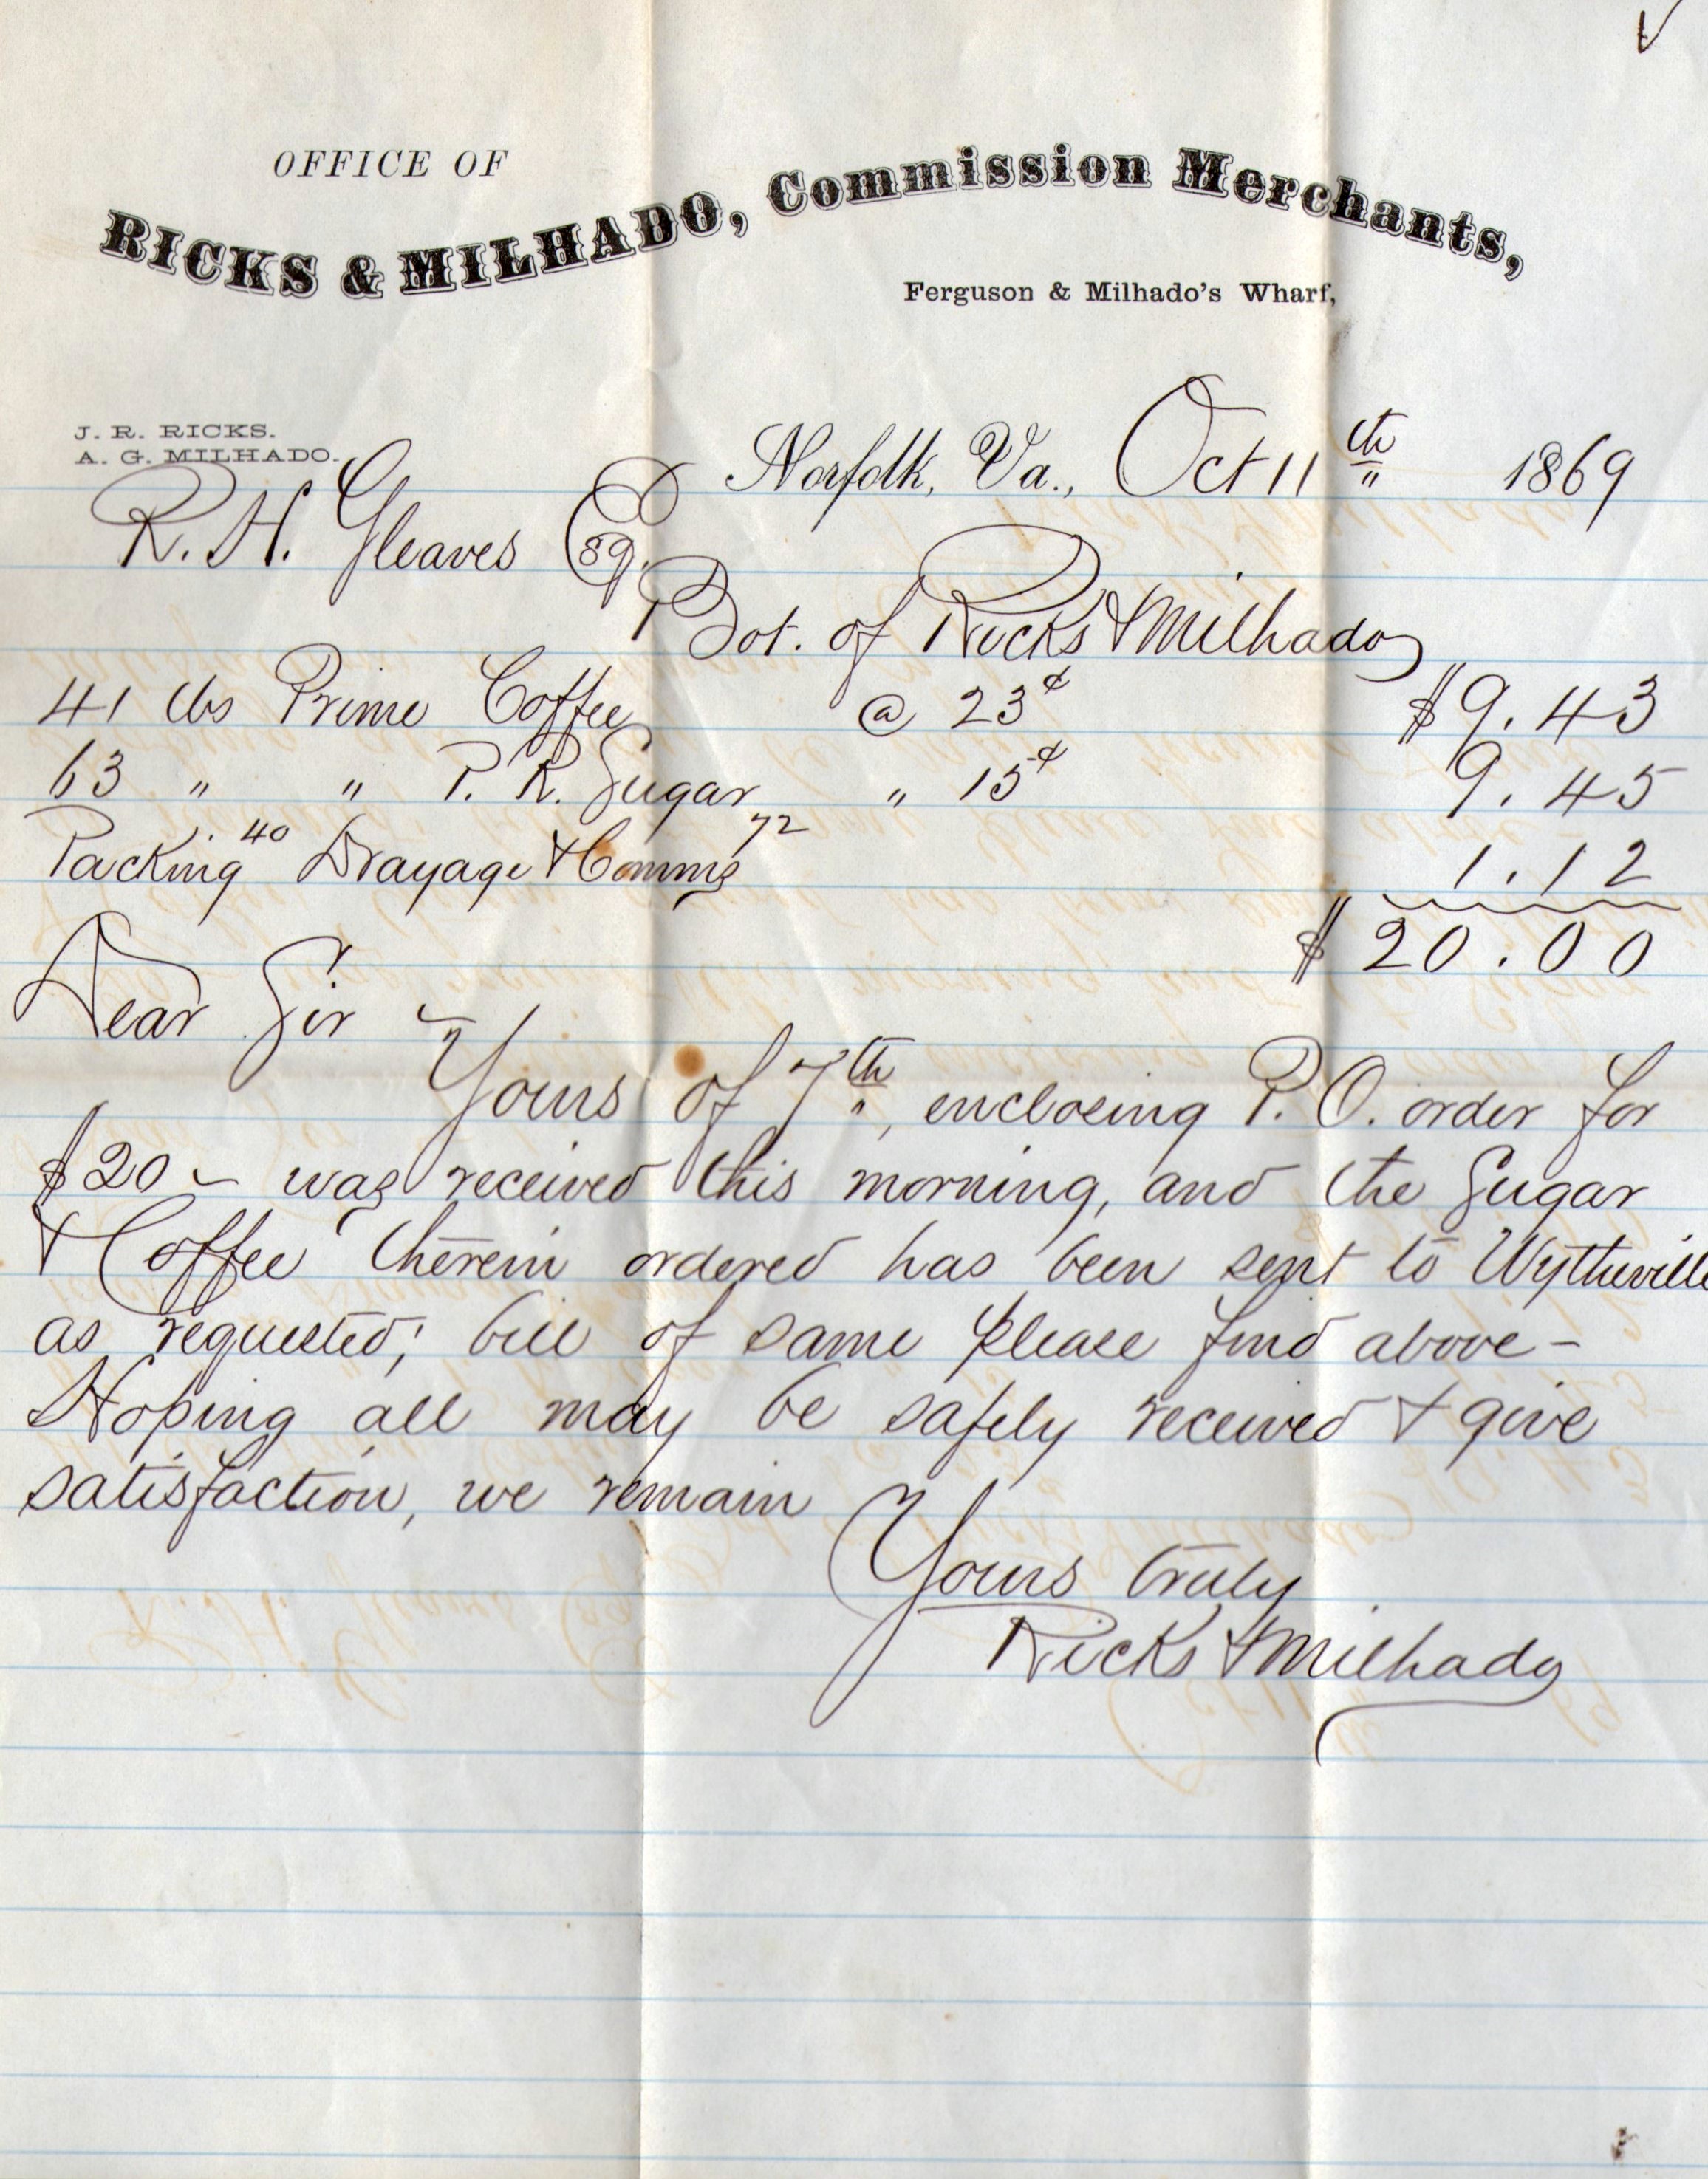 OFFICE OF
RICKS & MILHADO, Commission Merchants,
Ferguson & Milhado's Wharf,
J. R. RICKS.
A. G. MILHADO.
Norfolk, Va., Oct 11th 1869
R. H. Gleaves Esq.
Bot. of Ricks & Milhado
41 lbs Prime Coffee @ 23¢ $9.43
63 " " P. R. Sugar " 15¢ 9.45
Packing 40 Drayage & Comms 72 1.12
$20.00
Dear Sir ~
Yours of 7th, enclosing P. O. order for
$20 ~ was received this morning, and the Sugar
& Coffee therein ordered has been sent to Wytheville
as requested; bill of same please find above -
Hoping all may be safely received & give
satisfaction, we remain
Yours truly
Ricks & Milhado